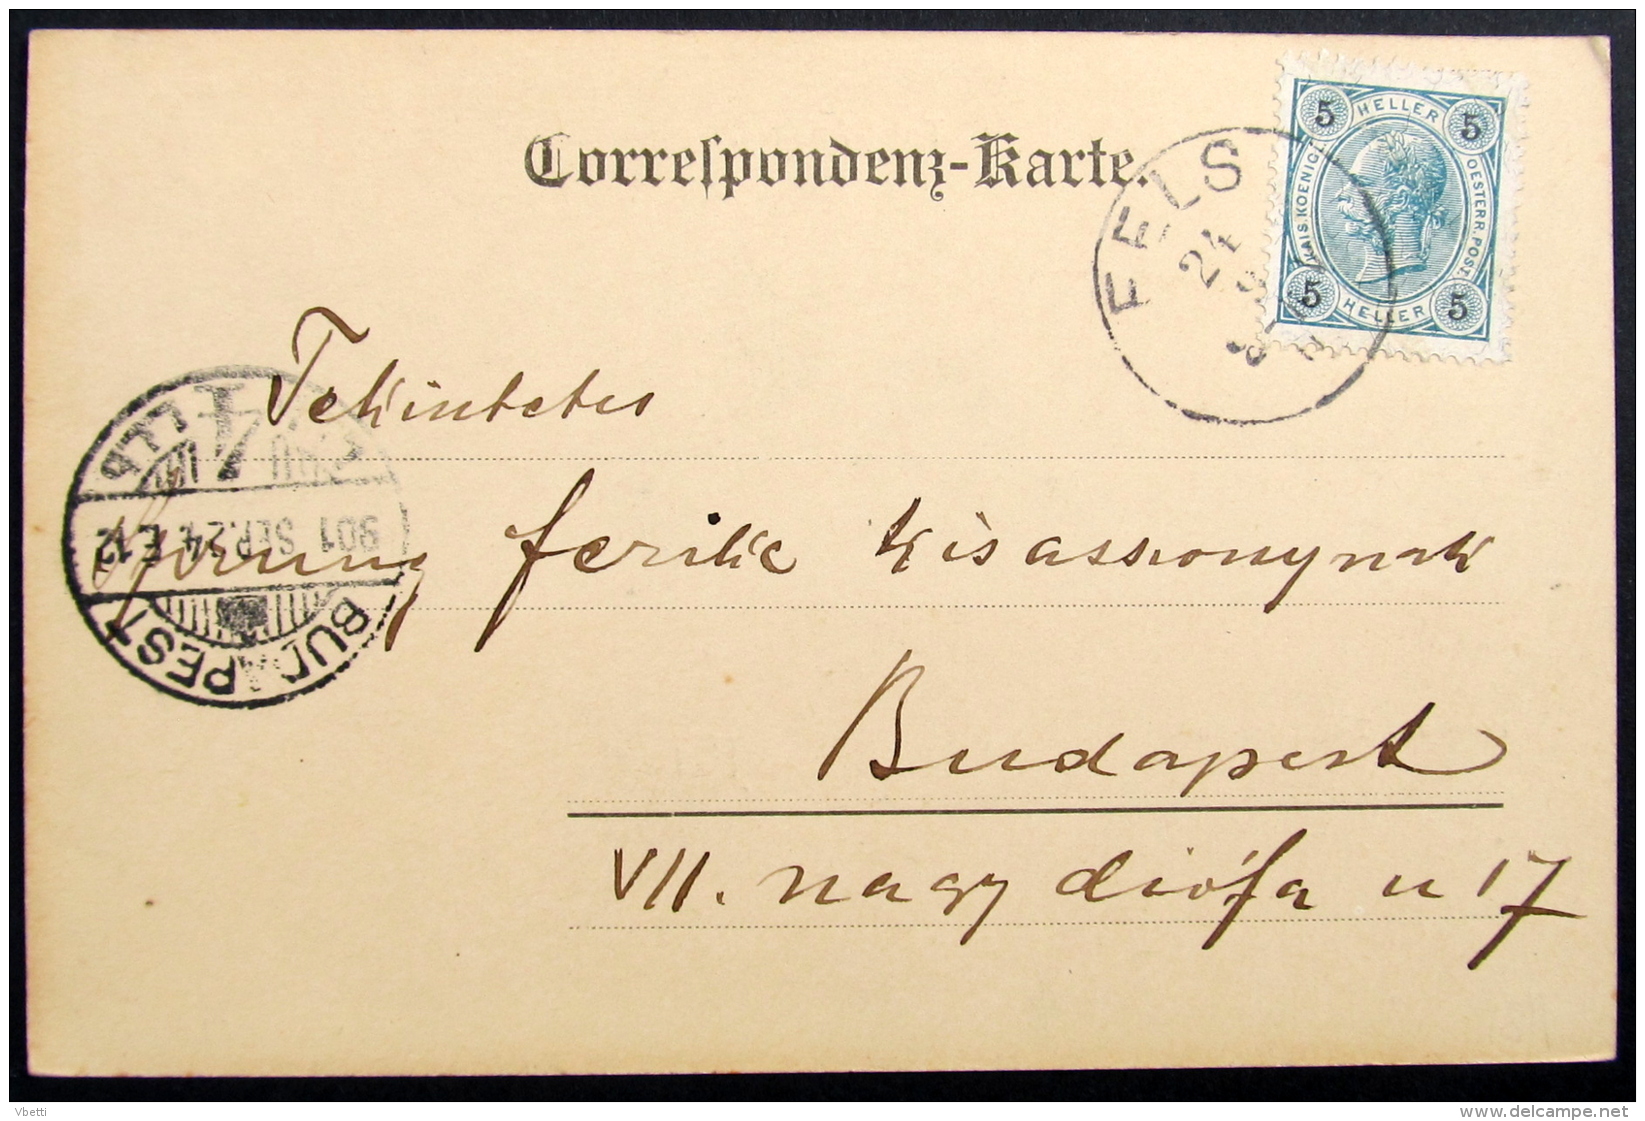 Correspondenz-Karte.
5 HELLER 5
KAIS. KOENIGL.
OESTERR. POST.
5 HELLER 5
FELS
24
9
Tekintetes
ferike kisasszonynak
Budapest
VII. nagy diófa u 17
BUDAPEST
901 SEP. 24
Vbetti
www.delcampe.net